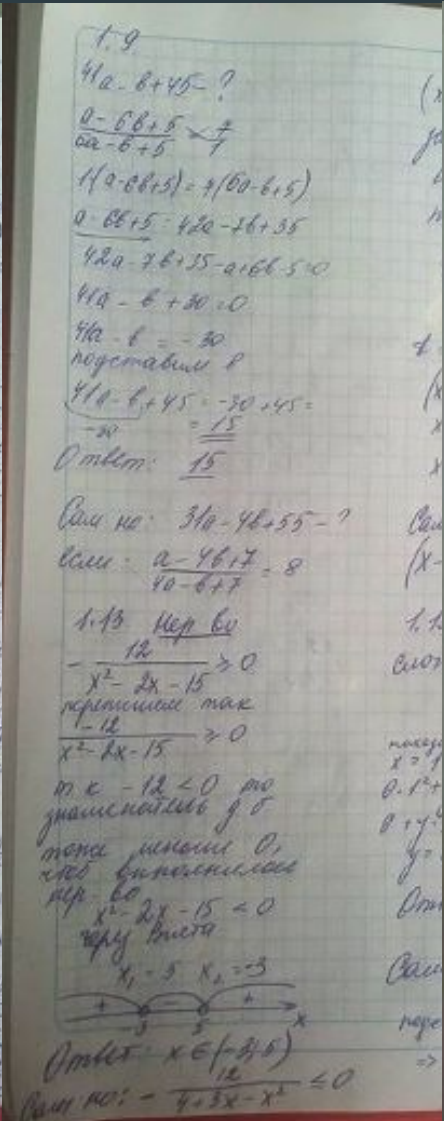 1.9
41a - b + 45 - ?
a - 6b + 5 / 6a - b + 5 = 7 / 1
1(a - 6b + 5) = 7(6a - b + 5)
a - 6b + 5 = 42a - 7b + 35
42a - 7b + 35 - a + 6b - 5 = 0
41a - b + 30 = 0
41a - b = -30
подставим в
41a - b + 45 = -30 + 45 =
-30 = 15
Ответ: 15
Сам но: 31a - 4b + 55 - ?
если: a - 4b + 7 / 4a - b + 7 = 8
1.13 Нер во
- 12 / x² - 2x - 15 ≥ 0
перепишем так
-12 / x² - 2x - 15 ≥ 0
т к -12 < 0 то
знаменатель д б
тоже меньше 0,
чтоб выполнялось
нер во
x² - 2x - 15 < 0
через Виета
x₁ = 5 x₂ = -3
+ - +
-3 5 x
Ответ: x ∈ (-3; 5)
Сам но: - 12 / 4 + 3x - x² ≤ 0
(x
x
x
Сам
(x -
1.1
слож
x = 1
0 · 1² +
0 + y
y =
Отв
Сам
пере
=>